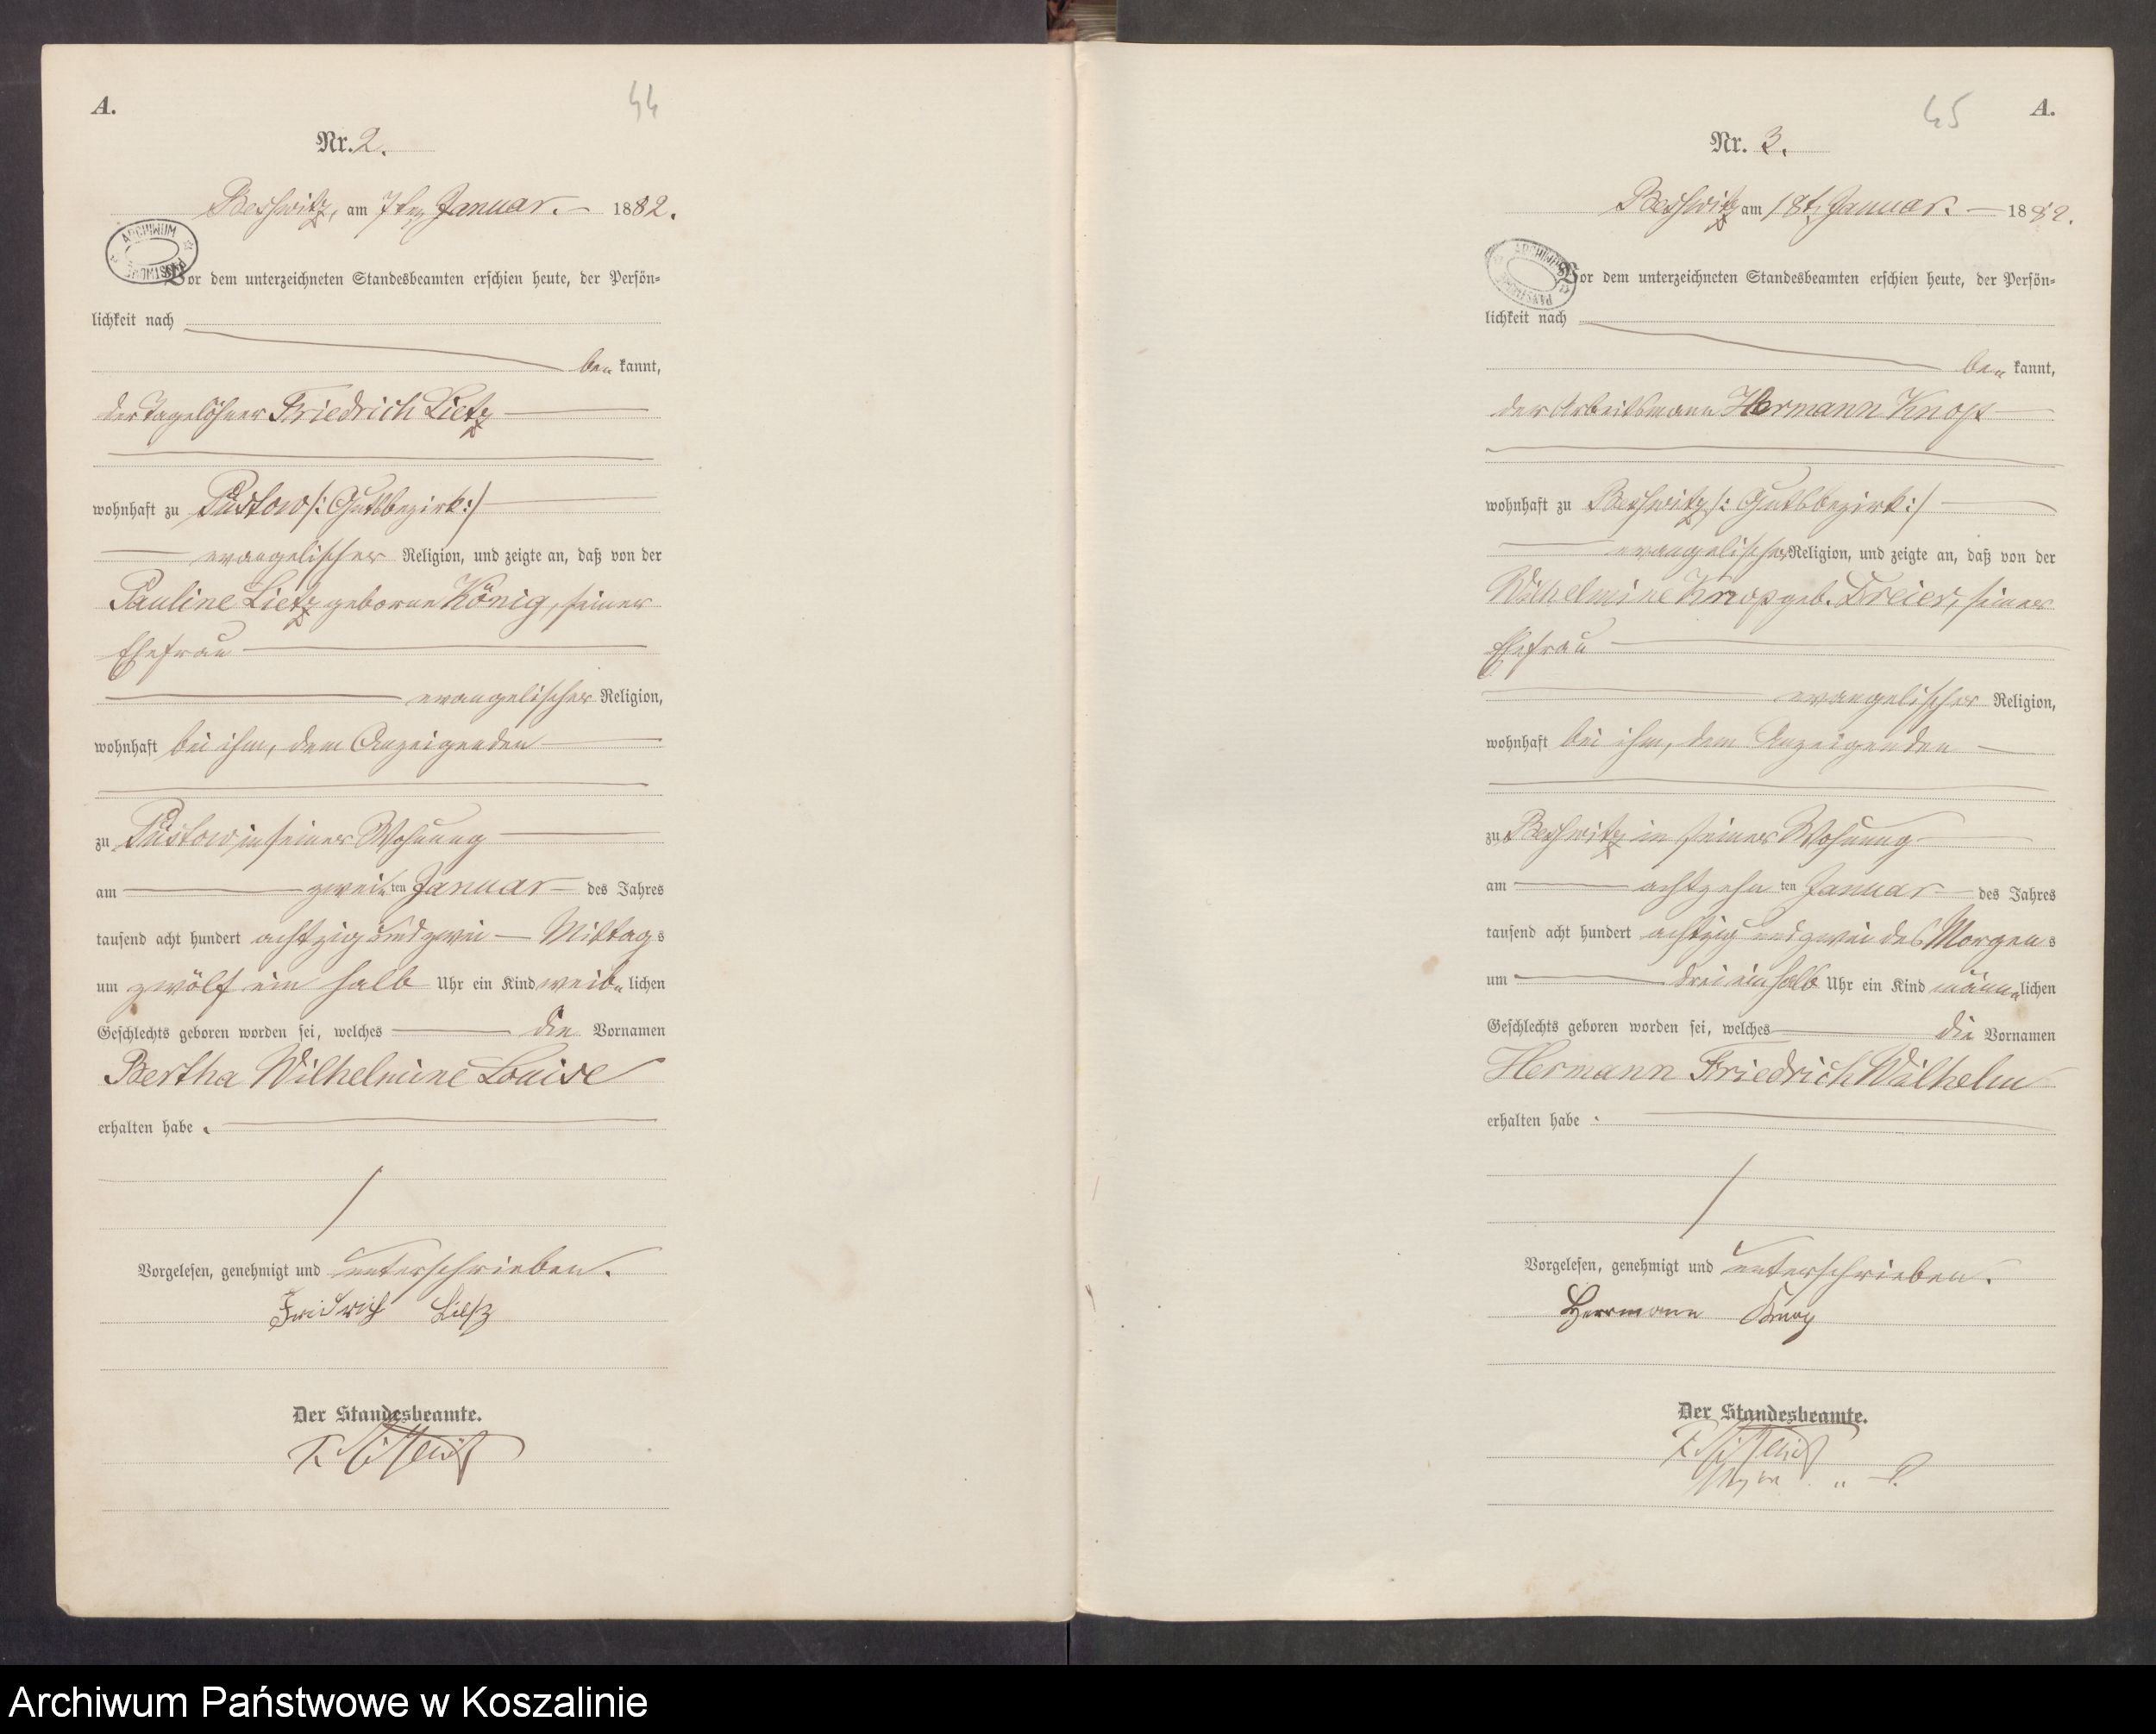 A.
44
Nr. 2.
Beßwitz, am 7ten Januar. 1882.
ARCHIWUM PAŃSTWOWE
Vor dem unterzeichneten Standesbeamten erschien heute, der Persön-
lichkeit nach
be„kannt,
der Tagelöhner Friedrich Lietz
wohnhaft zu Püstow /: Gutsbezirk :/
evangelischer Religion, und zeigte an, daß von der
Pauline Lietz geborne König, seiner
Ehefrau
evangelischer Religion,
wohnhaft bei ihm, dem Anzeigenden
zu Püstow in seiner Wohnung
am zweiten Januar des Jahres
tausend acht hundert achtzig und zwei Mittags
um zwölf ein halb Uhr ein Kind weib„lichen
Geschlechts geboren worden sei, welches die Vornamen
Bertha Wilhelmine Louise
erhalten habe.
Vorgelesen, genehmigt und unterschrieben.
Friedrich Lietz
Der Standesbeamte.
A.
45
Nr. 3.
Beßwitz am 18t Januar. 1882.
ARCHIWUM PAŃSTWOWE
Vor dem unterzeichneten Standesbeamten erschien heute, der Persön-
lichkeit nach
be„kannt,
der Arbeitsmann Hermann Knop
wohnhaft zu Beßwitz /: Gutsbezirk :/
evangelischer Religion, und zeigte an, daß von der
Wilhelmine Knop geb. Freier, seiner
Ehefrau
evangelischer Religion,
wohnhaft bei ihm, dem Anzeigenden
zu Beßwitz in seiner Wohnung
am achtzehnten Januar des Jahres
tausend acht hundert achtzig und zwei des Morgens
um drei ein halb Uhr ein Kind männ„lichen
Geschlechts geboren worden sei, welches die Vornamen
Hermann Friedrich Wilhelm
erhalten habe.
Vorgelesen, genehmigt und unterschrieben.
Herrmann Knop
Der Standesbeamte.
Archiwum Państwowe w Koszalinie